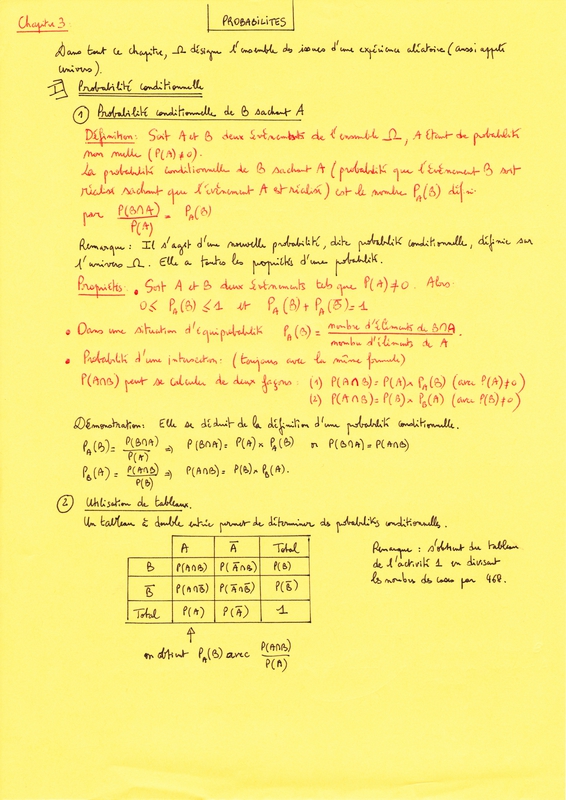 Chapitre 3:
PROBABILITES
Dans tout ce chapitre, Ω désigne l'ensemble des issues d'une expérience aléatoire (aussi appelé
univers).
I Probabilité conditionnelle
① Probabilité conditionnelle de B sachant A
Définition: Soit A et B deux évènements de l'ensemble Ω, A étant de probabilité
non nulle (P(A)≠0).
La probabilité conditionnelle de B sachant A (probabilité que l'évènement B soit
réalisé sachant que l'évènement A est réalisé) est le nombre P_A(B) défini
par P(B∩A)/P(A) = P_A(B)
Remarque: Il s'agit d'une nouvelle probabilité, dite probabilité conditionnelle, définie sur
l'univers Ω. Elle a toutes les propriétés d'une probabilité.
Propriétés: • Soit A et B deux évènements tels que P(A)≠0. Alors:
0 ≤ P_A(B) ≤ 1 et P_A(B) + P_A(B̅) = 1
• Dans une situation d'équiprobabilité P_A(B) = nombre d'éléments de B∩A / nombre d'éléments de A.
• Probabilité d'une intersection: (toujours avec la même formule)
P(A∩B) peut se calculer de deux façons: (1) P(A∩B) = P(A) × P_A(B) (avec P(A)≠0)
(2) P(A∩B) = P(B) × P_B(A) (avec P(B)≠0)
Démonstration: Elle se déduit de la définition d'une probabilité conditionnelle.
P_A(B) = P(B∩A)/P(A) ⇒ P(B∩A) = P(A) × P_A(B) or P(B∩A) = P(A∩B)
P_B(A) = P(A∩B)/P(B) ⇒ P(A∩B) = P(B) × P_B(A).
② Utilisation de tableaux.
Un tableau à double entrée permet de déterminer des probabilités conditionnelles.
A A̅ Total
B P(A∩B) P(A̅∩B) P(B)
B̅ P(A∩B̅) P(A̅∩B̅) P(B̅)
Total P(A) P(A̅) 1
↑
on obtient P_A(B) avec P(A∩B)/P(A)
Remarque: s'obtient du tableau
de l'activité 1 en divisant
les nombres des cases par 468.